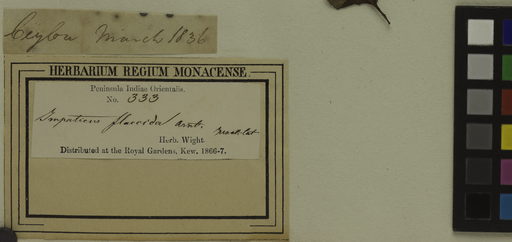 Ceylon March 1836
HERBARIUM REGIUM MONACENSE.
Peninsula Indiae Orientalis.
No. 333
Impatiens flaccida Arnt.
Herb. Wight.
Distributed at the Royal Gardens, Kew, 1866-7.